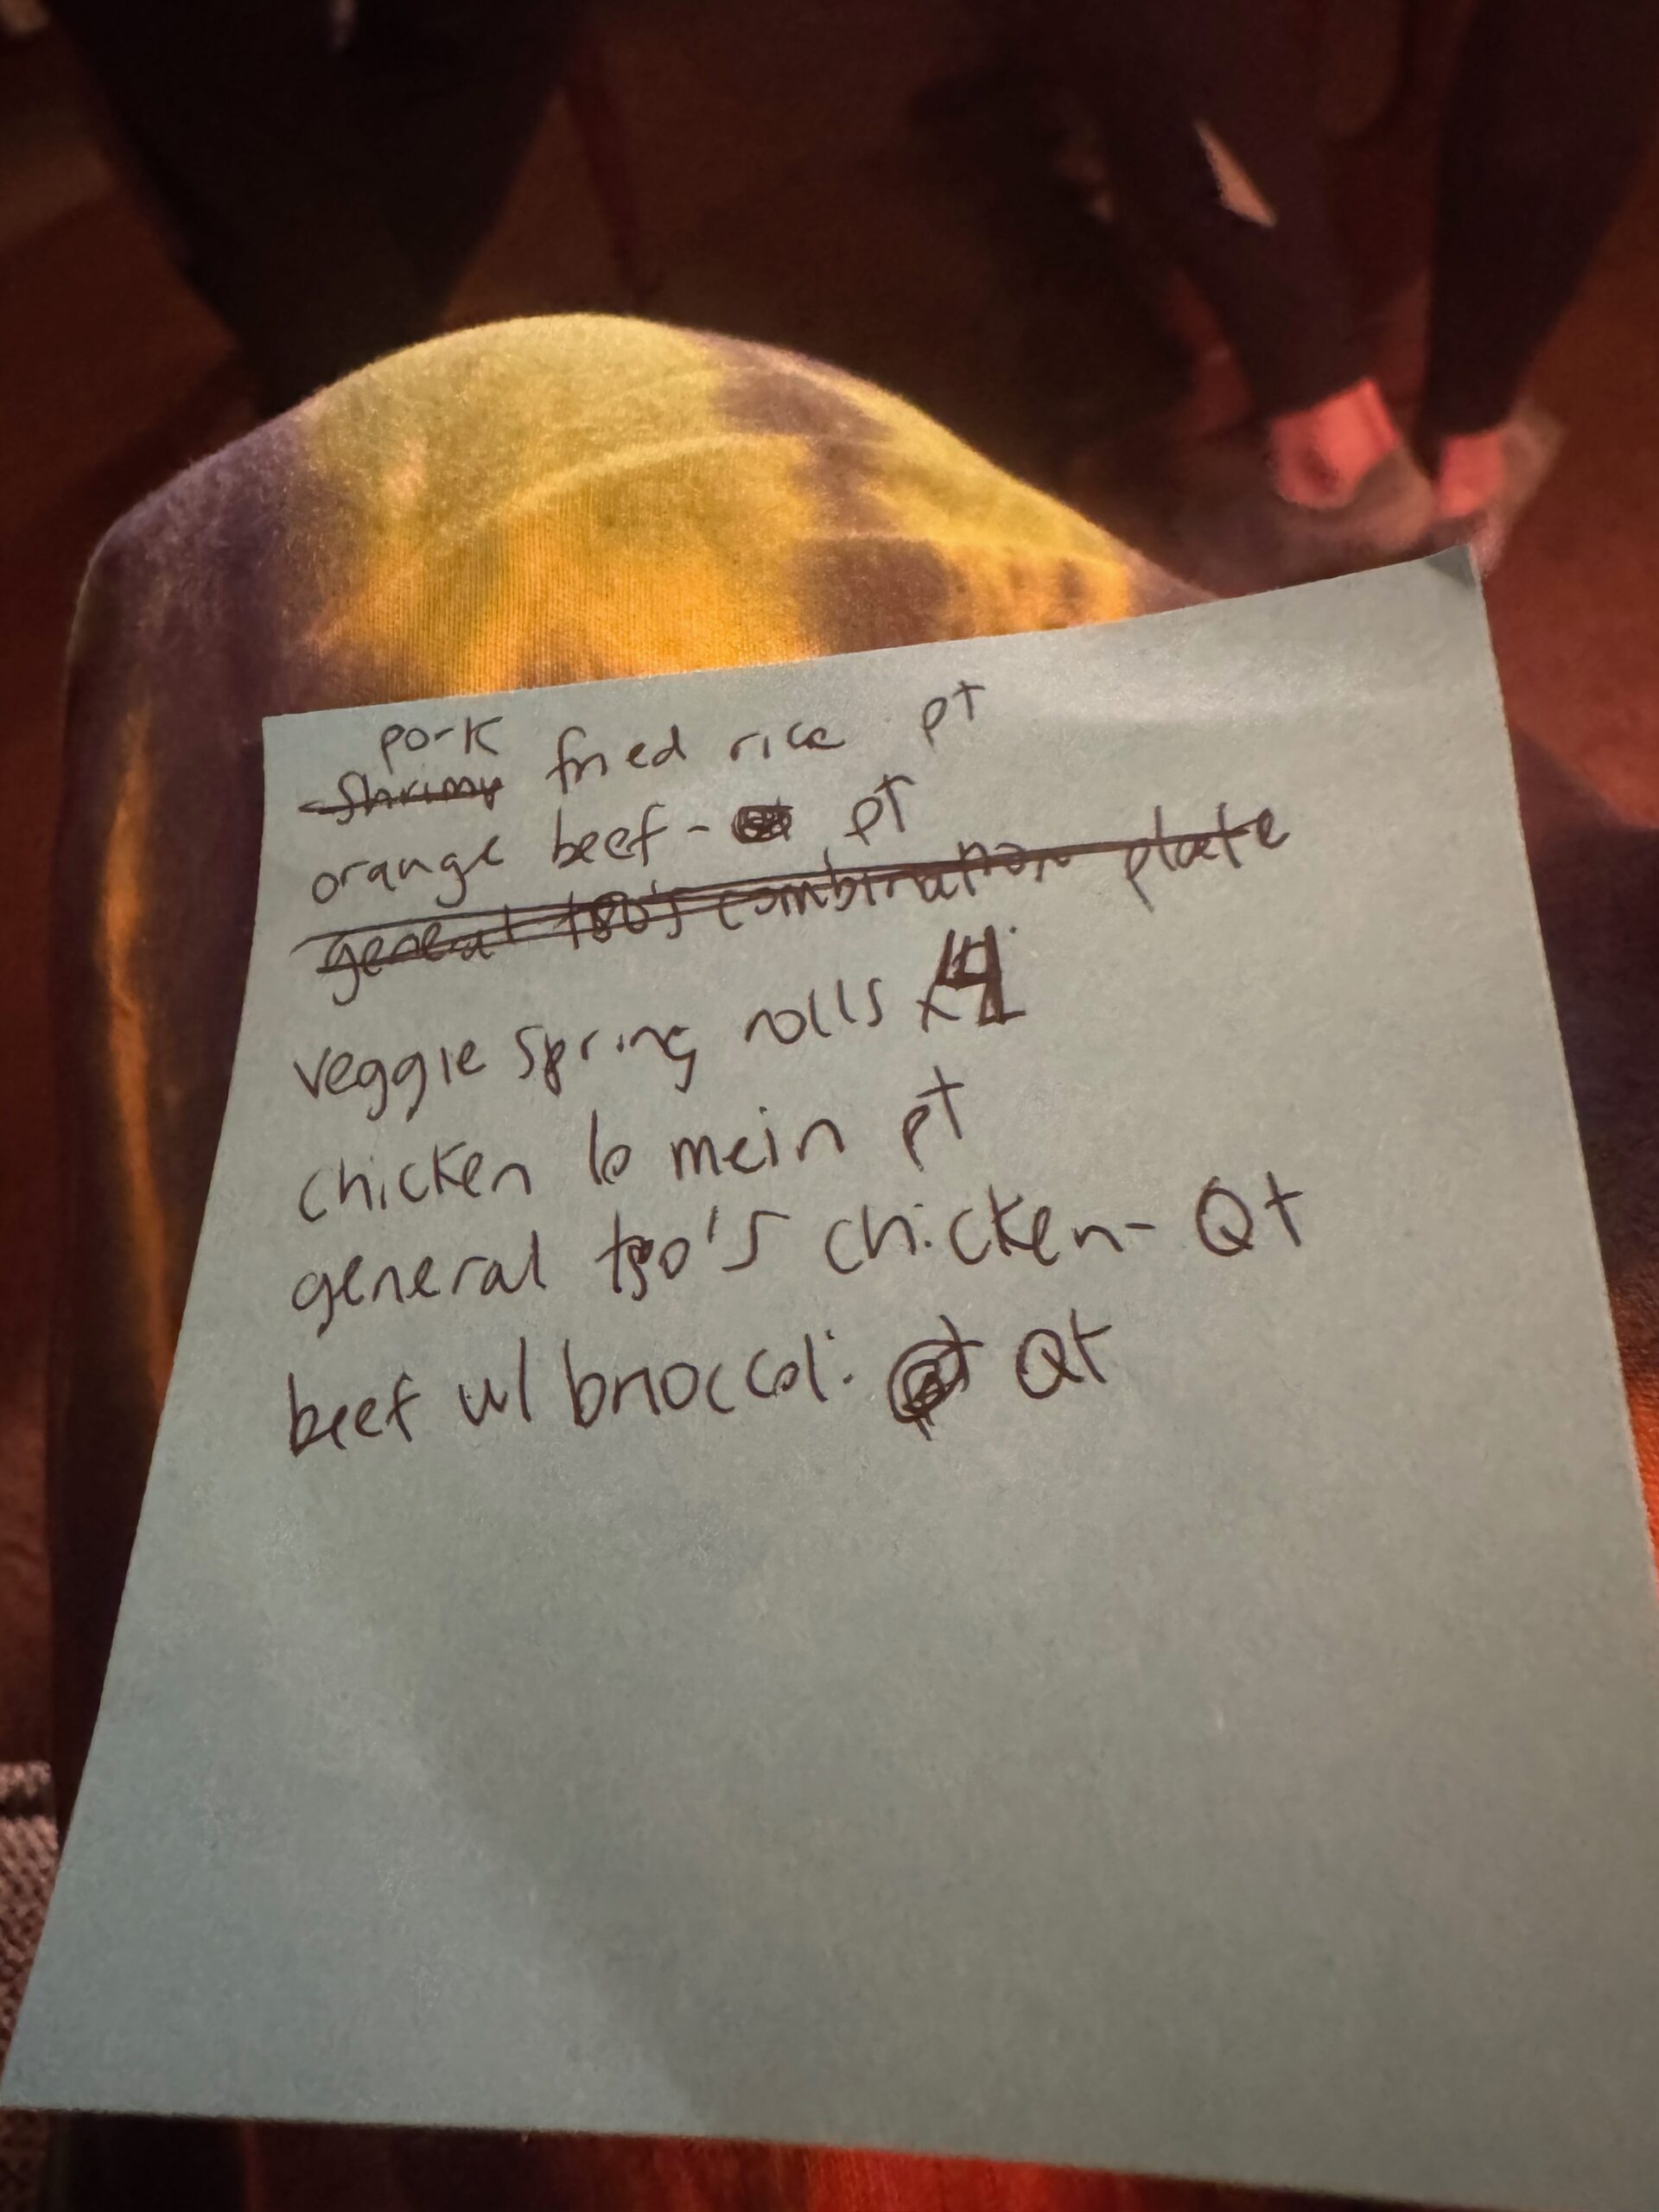 pork
shrimp fried rice pt
orange beef - pt
general tso's combination plate
veggie spring rolls x4
chicken lo mein pt
general tso's chicken - Qt
beef w/ broccoli Qt